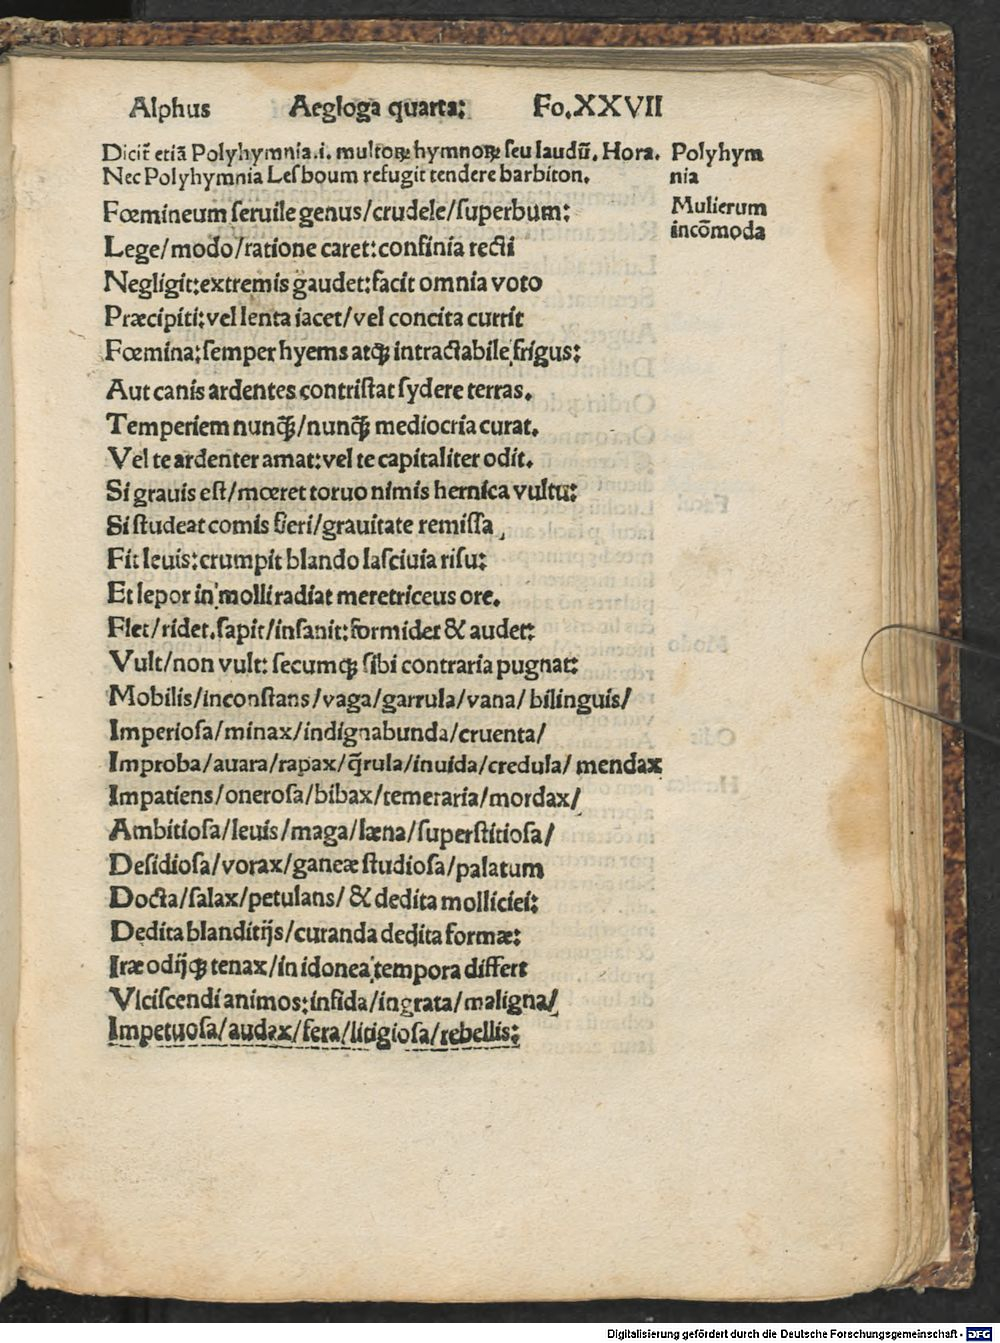 Alphus Aegloga quarta: Fo.XXVII
Dicit̃ etiã Polyhymnia.i. multoꝝ hymnoꝝ seu laudũ. Hora.
Nec Polyhymnia Lesboum refugit tendere barbiton.
Polyhym
nia
Mulierum
incõmoda
Fœmineum seruile genus/crudele/superbum:
Lege/modo/ratione caret:confinia recti
Negligit:extremis gaudet:facit omnia voto
Præcipiti:vel lenta iacet/vel concita currit
Fœmina:semper hyems atqꝫ intractabile frigus:
Aut canis ardentes contristat sydere terras.
Temperiem nunqꝫ̃/nunqꝫ̃ mediocria curat.
Vel te ardenter amat:vel te capitaliter odit.
Si grauis est/mœret toruo nimis hernica vultu:
Si studeat comis fieri/grauitate remissa
Fit leuis:erumpit blando lasciuia risu:
Et lepor in molli radiat meretriceus ore.
Flet/ridet.sapit/insanit:formidet & audet:
Vult/non vult: secumqꝫ sibi contraria pugnat:
Mobilis/inconstans/vaga/garrula/vana/ bilinguis/
Imperiosa/minax/indignabunda/cruenta/
Improba/auara/rapax/q̃rula/inuida/credula/ mendax
Impatiens/onerosa/bibax/temeraria/mordax/
Ambitiosa/leuis/maga/læna/superstitiosa/
Desidiosa/vorax/ganeæ studiosa/palatum
Docta/salax/petulans/ & dedita molliciei:
Dedita blanditijs/curanda dedita formæ:
Iræ odijqꝫ tenax/in idonea tempora differt
Vlciscendi animos:infida/ingrata/maligna/
Impetuosa/audax/fera/litigiosa/rebellis:
Digitalisierung gefördert durch die Deutsche Forschungsgemeinschaft - DFG